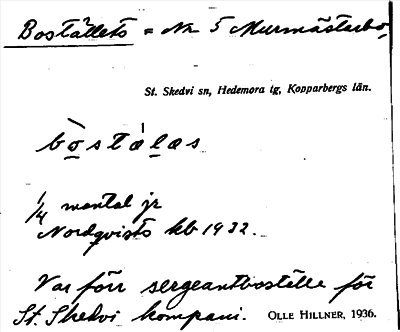 Boställets = Nr 5 Murmästarbo,
St. Skedvi sn, Hedemora tg, Kopparbergs län.
bòstálas
1/4 mantal jr
Nordqvists kb 1932.
Var förr sergeantboställe för
St. Skedvi kompani. OLLE HILLNER, 1936.